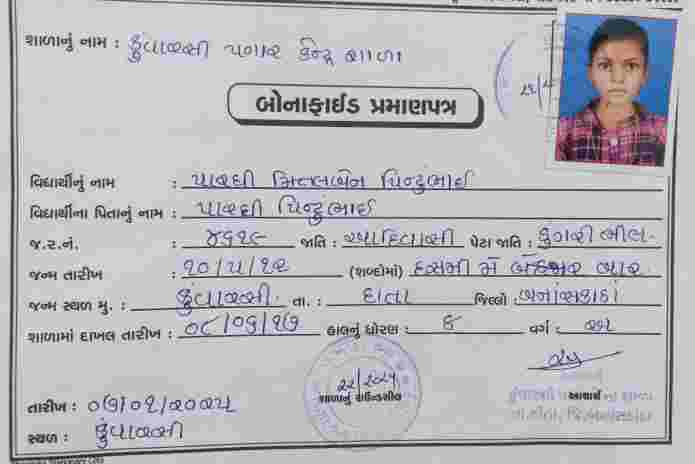 શાળાનું નામ : કુંવારસી પગાર કેન્દ્ર શાળા
બોનાફાઈડ પ્રમાણપત્ર
વિદ્યાર્થીનું નામ : પારઘી મિત્તલબેન પિન્ટુભાઈ
વિદ્યાર્થીના પિતાનું નામ : પારઘી પિન્ટુભાઈ
જ.ર.નં. : ૪૭૧૯ જાતિ : આદિવાસી પેટા જાતિ : ડુંગરી ભીલ
જન્મ તારીખ : ૧૦/૫/૧૨ (શબ્દોમાં) દસમી મે બાર
જન્મ સ્થળ મુ. : કુંવારસી. તા. : દાતા જિલ્લો : બનાસકાંઠા
શાળામાં દાખલ તારીખ : ૦૮/૦૭/૧૭ હાલનું ધોરણ : ૬ વર્ગ :
૨૨/૨૦૨૫
શાળાનું રાઉન્ડસીલ આચાર્ય
તારીખ : ૦૭/૦૧/૨૦૨૫
સ્થળ : કુંવારસી